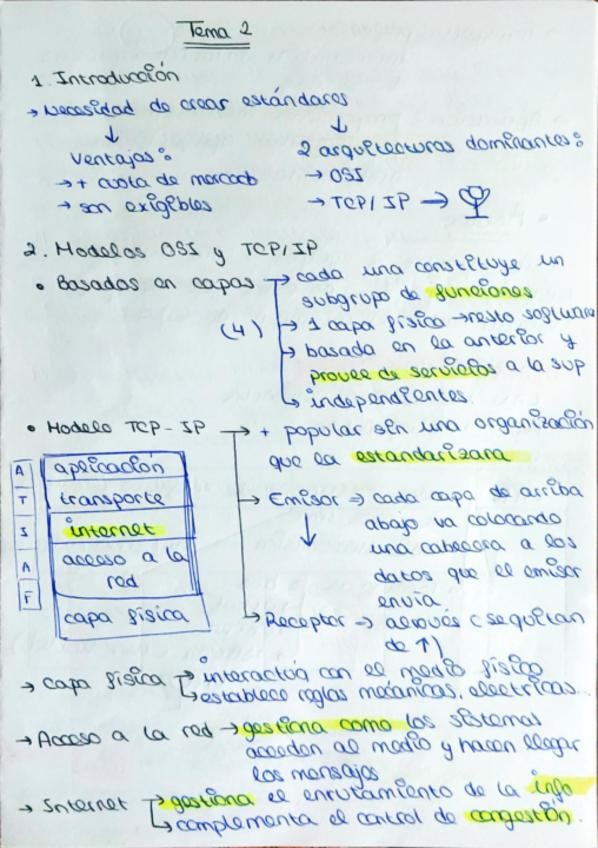 Tema 2
1. Introducción
→ Necesidad de crear estándares
↓ ↓
Ventajas: 2 arquitecturas dominantes:
→ + cuota de mercado → OSI
→ son exigibles → TCP/IP →
2. Modelos OSI y TCP/IP
• Basados en capas → cada una constituye un
subgrupo de funciones
(4) → 1 capa física → resto software
→ basada en la anterior y
provee de servicios a la sup
→ independientes
• Modelo TCP-IP → + popular sin una organización
que la estandarizara
A aplicación
T transporte
I internet
A acceso a la
red
F capa física
→ Emisor → cada capa de arriba
↓ abajo va colocando
una cabecera a los
datos que el emisor
envía
→ Receptor → alrevés (se quitan
de ↑)
→ Capa física → interactúa con el medio físico
→ establece reglas mecánicas, electricas...
→ Acceso a la red → gestiona como los sistemas
acceden al medio y hacen llegar
los mensajes
→ Internet → gestiona el enrutamiento de la info
→ complementa el control de congestión.